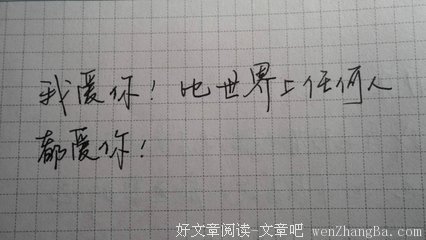 我爱你！比世界上任何人
都爱你！
好文章阅读-文章吧 wenZhangBa.com